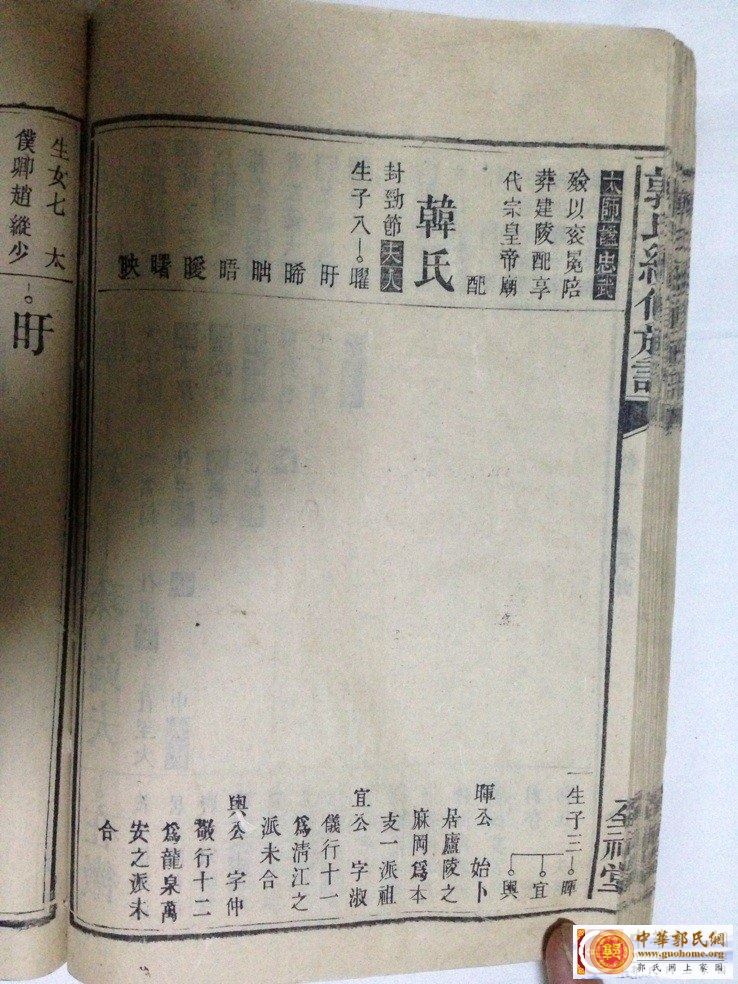 郭氏續修族譜
全福堂
太師謚忠武
殮以衮冕陪
葬建陵配享
代宗皇帝廟
配
韓氏
封勁節夫人
生子八
曜
旰
晞
昢
晤
曖
曙
映
一生子三
暉
宜
輿
暉公 始卜
居廬陵之
麻岡爲本
支一派祖
宜公 字淑
儀行十一
爲清江之
派未合
輿公 字仲
行十二
爲龍泉萬
安之派未
合
生女七 太
僕卿趙縱少
旰
中華郭氏網
www.guohome.org
郭氏網上家園